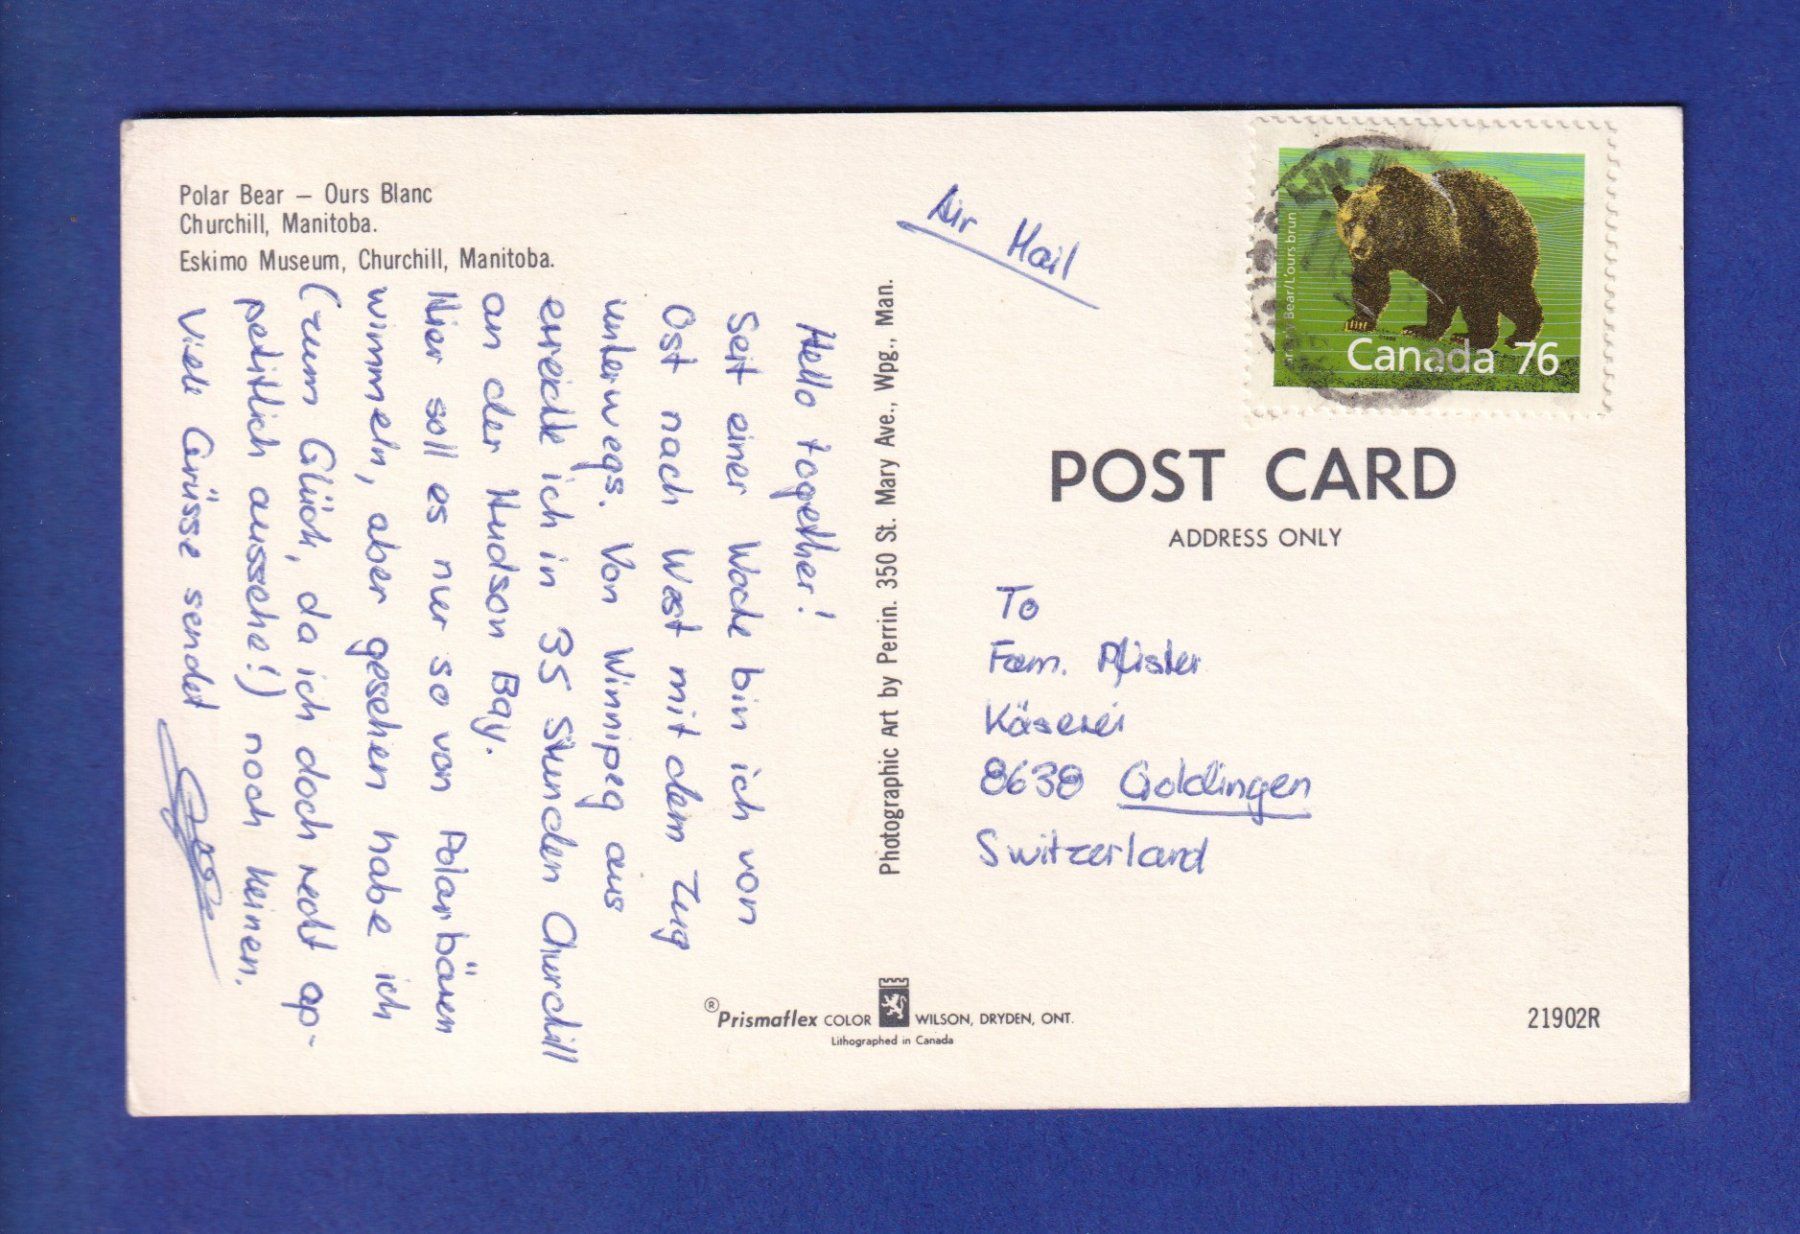 Polar Bear – Ours Blanc
Churchill, Manitoba.
Eskimo Museum, Churchill, Manitoba.
Hello together!
Seit einer Woche bin ich von
Ost nach West mit dem Zug
unterwegs. Von Winnipeg aus
erreichte ich in 35 Stunden Churchill
an der Hudson Bay.
Hier soll es nur so von Polarbären
wimmeln, aber gesehen habe ich
(zum Glück, da ich doch recht ap-
petitlich aussehe!) noch keinen.
Viele Grüsse sendet
Photographic Art by Perrin. 350 St. Mary Ave., Wpg., Man.
Air Mail
Grizzly Bear/L'ours brun
Canada 76
POST CARD
ADDRESS ONLY
To
Fam. Pfister
Käserei
8638 Goldingen
Switzerland
®Prismaflex COLOR WILSON, DRYDEN, ONT.
Lithographed in Canada
21902R